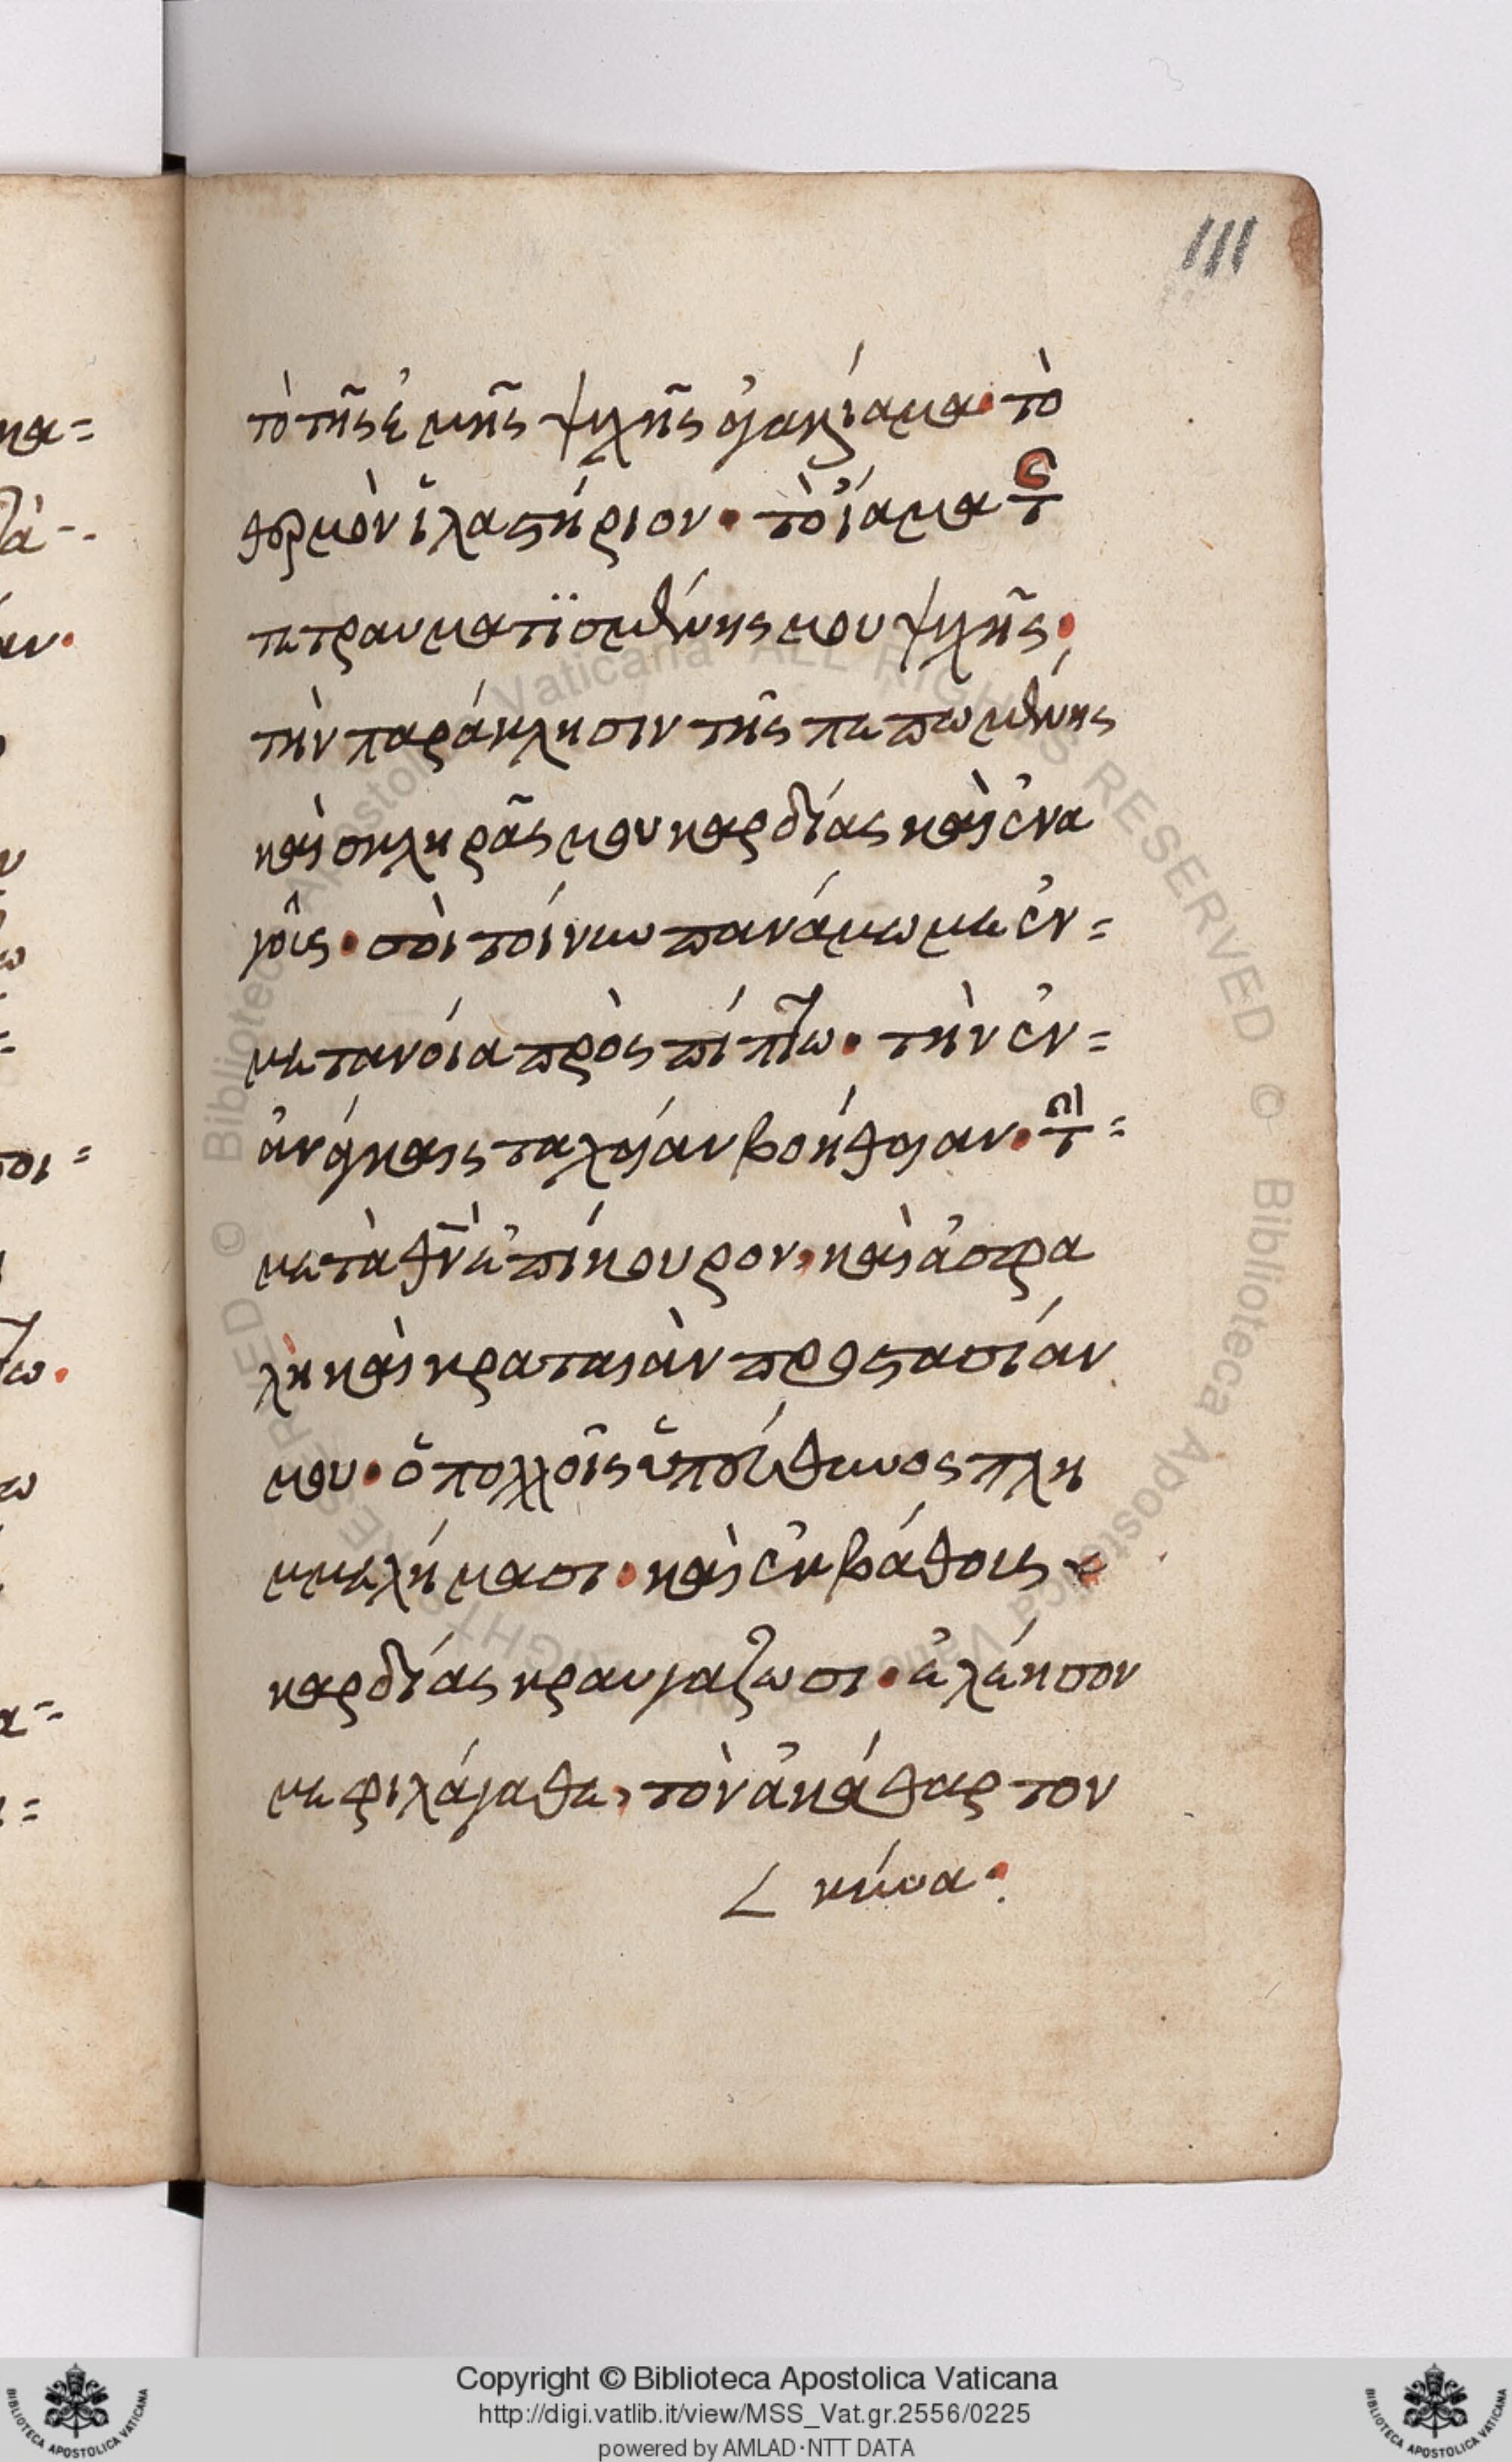 111
τὸ τῆς ἐμῆς ψυχῆς ἁγίασμα· τὸ
θερμὸν ἱλαστήριον· τὸ ἴαμα τ
τετραυματϊσμένης μου ψυχῆς·
τὴν παράκλησιν τῆς πεπωρωμένης
καὶ σκληρᾶς μου καρδίας καὶ ἐνα
γοῦς· σοὶ τοίνυν πανάμωμε ἐν=
μετανοία προσπίπτω· τὴν ἐν=
ἀνάγκαις ταχεῖαν βοήθειαν· τὴν=
μετὰ θν ἐπίκουρον, καὶ ἀσφα
λῆ καὶ κραταιὰν προστασίαν
μου· ὁ πολλοῖς ὑπεύθυνος πλη
μμελήμασι· καὶ ἐκ βάθους
καρδίας κραυγάζω σοι· ἐλέησον
με φιλάγαθε, τὸν ἀκάθαρτον
κύνα·
Copyright © Biblioteca Apostolica Vaticana
http://digi.vatlib.it/view/MSS_Vat.gr.2556/0225
powered by AMLAD·NTT DATA